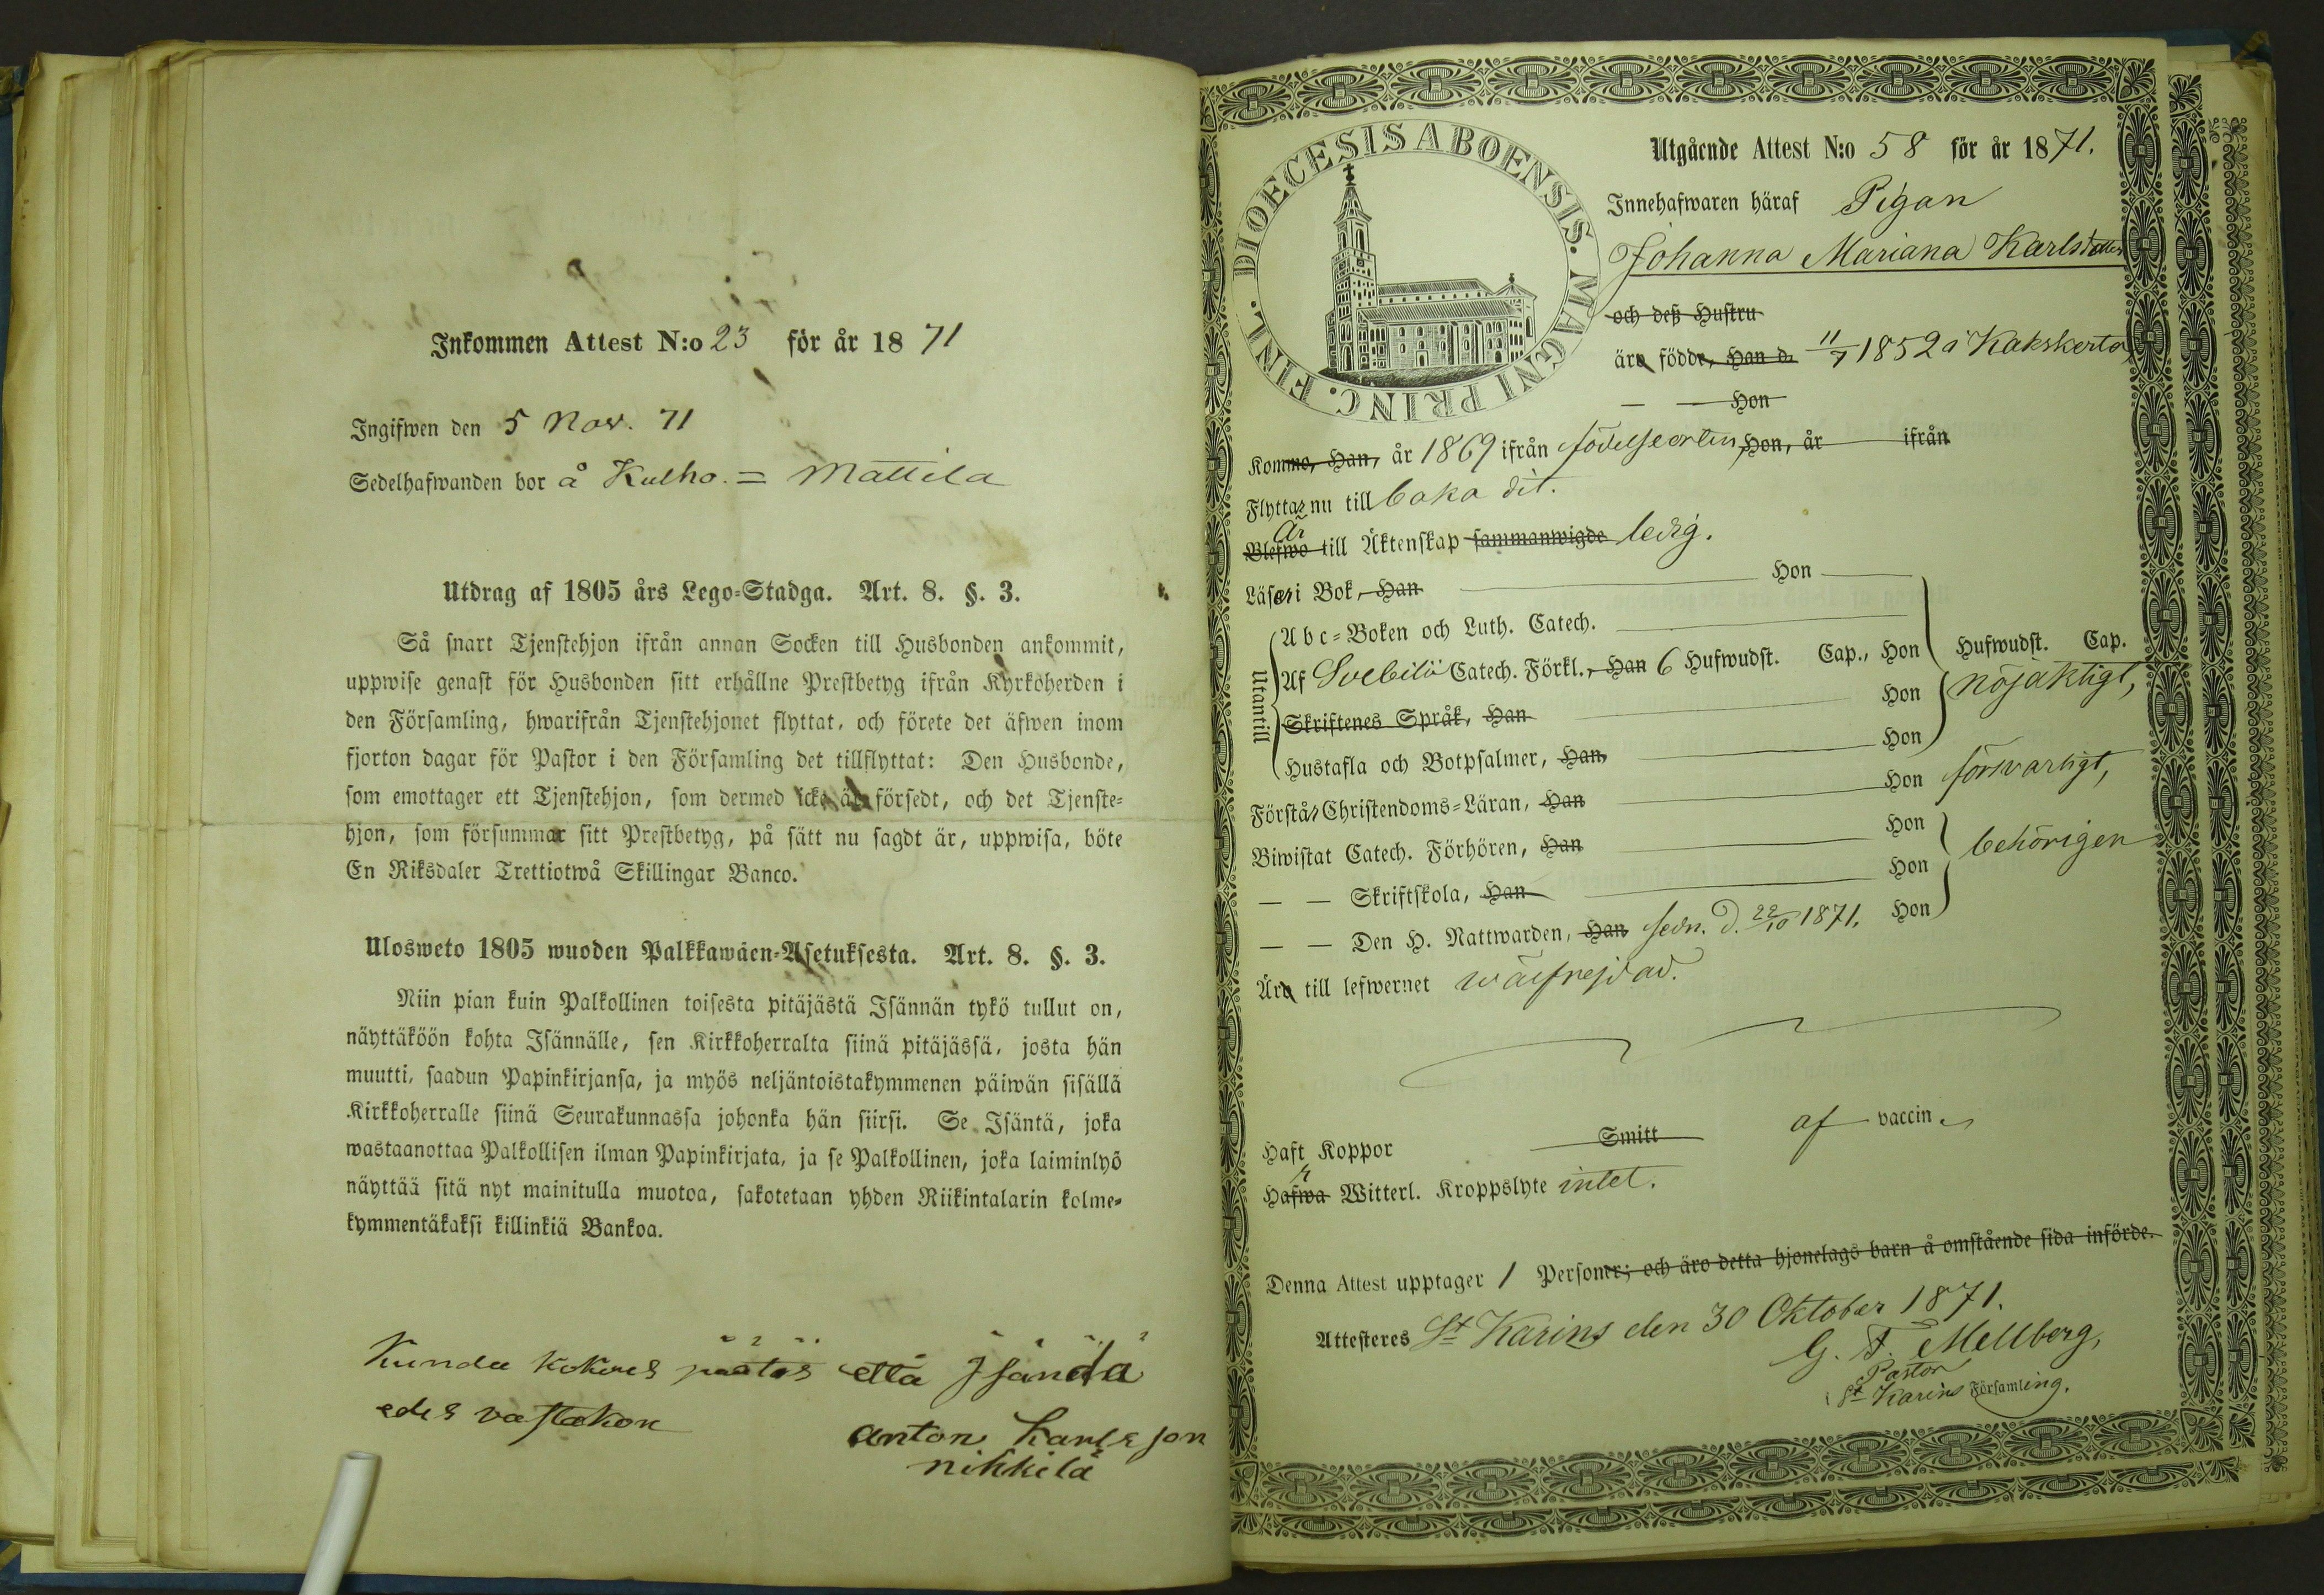 Inkommen Attest N:o 23 för år 1871
Ingifwen den 5 Nov. 71
Sedelhafwanden bor å Kulho. = Mattila
Utdrag af 1805 års Lego-Stadga. Art. 8. §. 3.
Så snart Tjenstehjon ifrån annan Socken till Husbonden ankommit,
uppwise genast för Husbonden sitt erhållne Prestbetyg ifrån Kyrkoherden i
den Församling, hwarifrån Tjenstehjonet flyttat, och förete det äfwen inom
fjorton dagar för Pastor i den Församling det tillflyttat: Den Husbonde,
som emottager ett Tjenstehjon, som dermed icke är försedt, och det Tjenste-
hjon, som försummar sitt Prestbetyg, på sätt nu sagdt är, uppwisa, böte
En Riksdaler Trettiotwå Skillingar Banco.
Ulosweto 1805 wuoden Palkkawäen-Asetuksesta. Art. 8. §. 3.
Niin pian kuin Palkollinen toisesta pitäjästä Isännän tykö tullut on,
näyttäköön kohta Isännälle, sen Kirkkoherralta siinä pitäjässä, josta hän
muutti, saadun Papinkirjansa, ja myös neljäntoistakymmenen päiwän sisällä
Kirkkoherralle siinä Seurakunnassa johonka hän siirsi. Se Isäntä, joka
wastaanottaa Palkollisen ilman Papinkirjata, ja se Palkollinen, joka laiminlyö
näyttää sitä nyt mainitulla muotoa, sakotetaan yhden Riikintalarin kolme-
kymmentäkaksi killinkiä Bankoa.
Kunda kokous päätös että Isändä
edes vastakon
anton Karlsson
nikkilä
DIOECESIS ABOENSIS. MAGNI PRINC. FINL.
Utgående Attest N:o 58 för år 1871.
Innehafwaren häraf Pigan
Johanna Mariana Karlsdotter
och deß Hustru
äro födde, Han d. 11/7 1852 å Kakskerta
— — Hon
Kommo, Han, år 1869 ifrån födelseorten, Hon, år ifrån
Flyttar nu till baka dit.
Är
Blefwo till Äktenskap sammanwigde ledig.
Läser i Bok, Han Hon
Utantill
Abc-Boken och Luth. Catech.
Af Svebilii Catech. Förkl., Han 6 Hufwudst. Cap., Hon Hufwudst. Cap.
Skriftenes Språk, Han Hon nöjaktigt,
Hustafla och Botpsalmer, Han, Hon
Förstår Christendoms-Läran, Han Hon förswarligt,
Biwistat Catech. Förhören, Han Hon
— — Skriftskola, Han Hon behörigen
— — Den H. Nattwarden, Han sedn. d. 22/10 1871. Hon
Äro till lefwernet wälfrejdad.
Haft Koppor Smitt af vaccin
Hafwa Witterl. Kroppslyte intet.
Denna Attest upptager 1 Personer; och äro detta hjonelags barn å omstående sida införde.
Attesteres St Karins den 30 Oktober 1871.
G. F. Mellberg,
Pastor
St Karins Församling.